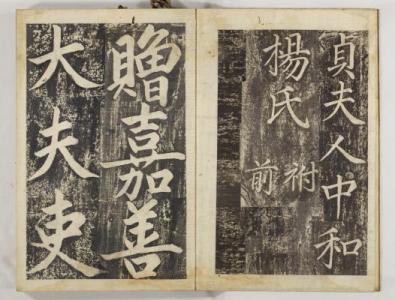 貞夫人中和
楊氏
祔
前
贈嘉善
大夫吏